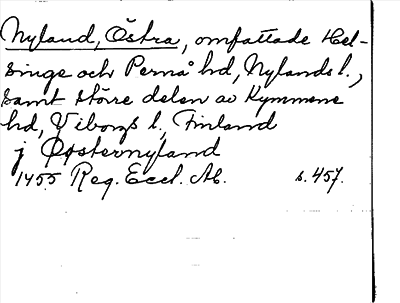 Nyland, Östra, omfattade Hel-
singe och Pernå hd, Nylands l.,
samt större delen av Kymmene
hd, Viborgs l., Finland
j Øosternyland
1455 Reg. Eccl. Ab. s. 457.